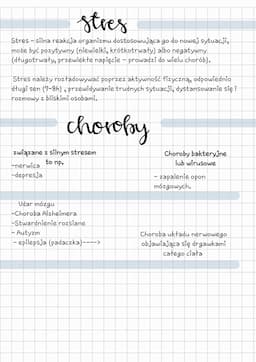 stres
Stres - silna reakcja organizmu dostosowująca go do nowej sytuacji,
może być pozytywny (niewielki, krótkotrwały) albo negatywny
(długotrwały, przewlekłe napięcie - prowadzi do wielu chorób).
Stres należy rozładowywać poprzez aktywność fizyczną, odpowiednio
długi sen (7-8h) , przewidywanie trudnych sytuacji, dystansowanie się i
rozmowy z bliskimi osobami.
choroby
związane z silnym stresem
to np,
-nerwica
-depresja
Choroby bakteryjne
lub wirusowe
- zapalenie opon
mózgowych,
Udar mózgu
-Choroba Alzheimera
-Stwardnienie rozsiane
- Autyzm
- epilepsja (padaczka)---->
Choroba układu nerwowego
objawiająca się drgawkami
całego ciała